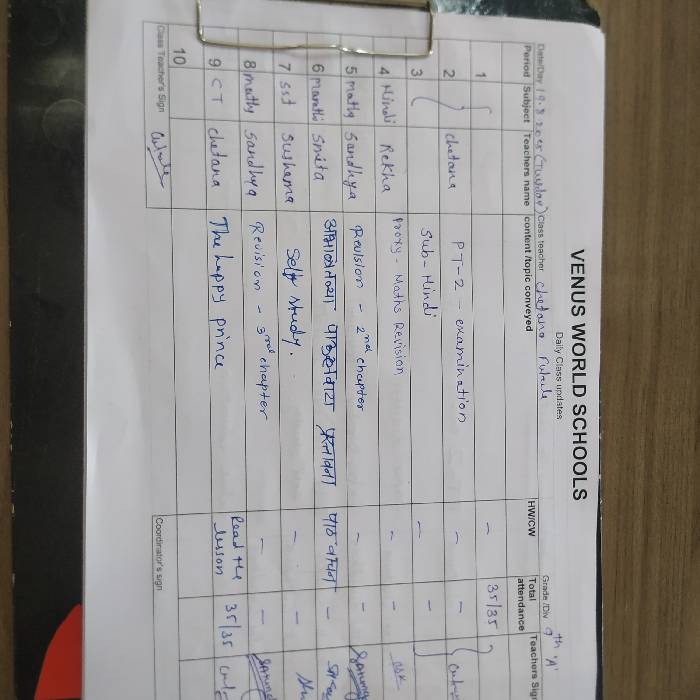 VENUS WORLD SCHOOLS
Daily Class updates
Date/Day 19.8.2025 (Tuesday) Class teacher Chetana Grade /Div 9th 'A'
Period Subject Teachers name content /topic conveyed HW/CW Total attendance Teachers Sig
1 - 35/35
2 chetana PT-2 - examination - -
3 Sub-Hindi - -
4 Hindi Rekha Proxy - Maths Revision - -
5 maths Sandhya Revision - 2nd chapter - -
6 marathi Smita -
7 SST Sushama Self study. - -
8 maths Sandhya Revision - 3rd chapter - -
9 CT chetana The happy prince Read the lesson 35/35
10
Class Teacher's Sign Coordinator's sign